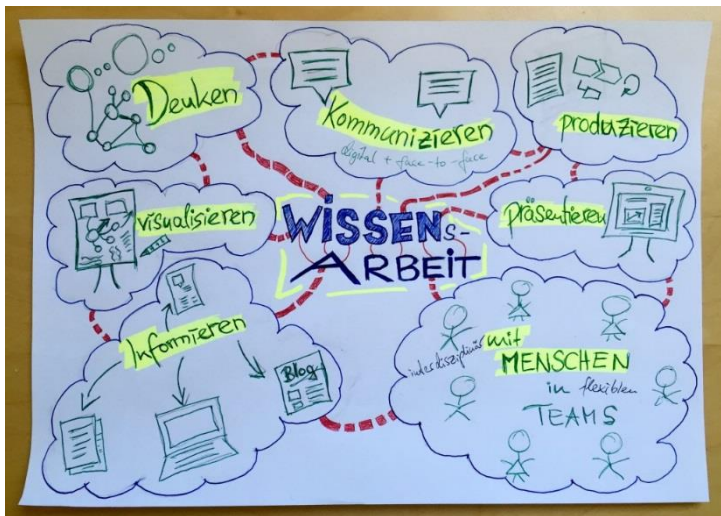 Denken
Kommunizieren
digital + face-to-face
produzieren
visualisieren
WISSENS-
ARBEIT
präsentieren
Informieren
Blog
interdisziplinär mit
MENSCHEN
in flexiblen
TEAMS